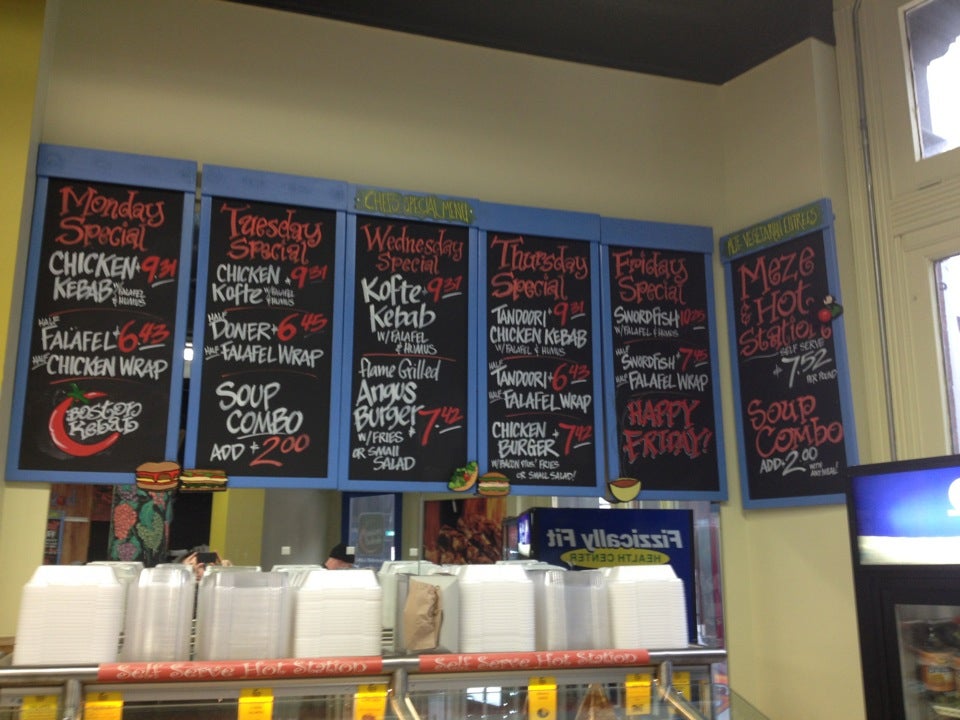 Monday
Special
CHICKEN 9.31
KEBAB W/ FALAFEL
& HUMUS
HALF
FALAFEL 6.43
HALF CHICKEN WRAP
Boston
Kebab
Tuesday
Special
CHICKEN 9.31
Kofte W/ FALAFEL
& HUMUS
HALF
DONER 6.45
HALF FALAFEL WRAP
SOUP
COMBO
ADD 2.00
CHEF'S SPECIAL MENU
Wednesday
Special
Kofte 9.31
Kebab
W/ FALAFEL
& HUMUS
flame Grilled
Angus
Burger 7.42
W/ FRIES
OR SMALL
SALAD
Thursday
Special
TANDOORI 9.31
CHICKEN KEBAB
W/ FALAFEL & HUMUS
HALF
TANDOORI 6.43
HALF FALAFEL WRAP
CHICKEN
BURGER 7.42
W/ BACON PLUS FRIES
OR SMALL SALAD!
Friday
Special
SWORDFISH 10.25
W/ FALAFEL & HUMUS
HALF
SWORDFISH 7.45
HALF FALAFEL WRAP
HAPPY
FRIDAY!
VEGETARIAN ENTREES
MEZE
& HOT
STATION
SELF SERVE
7.52
PER POUND
Soup
Combo
ADD 2.00 WITH
ANY MEAL!
Fizzically Fit
HEALTH CENTER
Self Serve Hot Station
Self Serve Hot Station